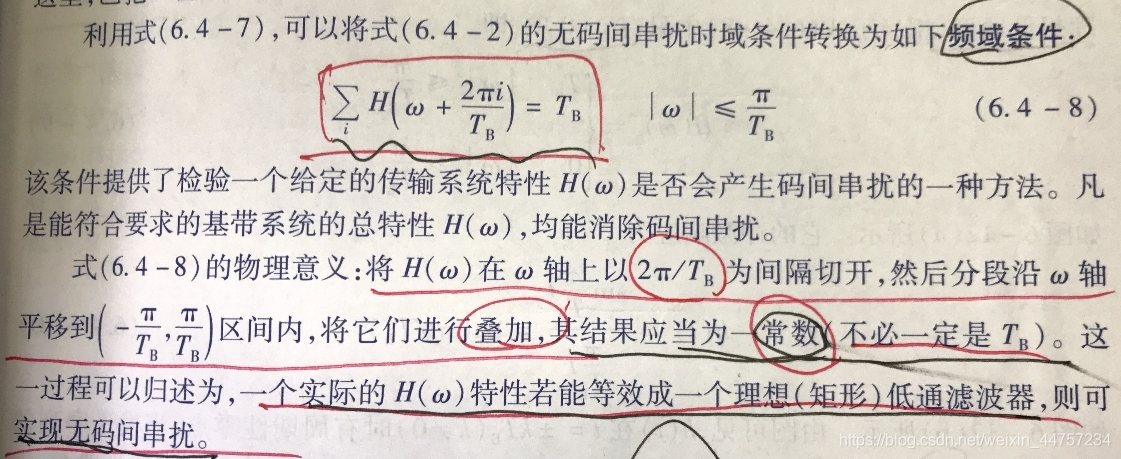 利用式(6.4-7),可以将式(6.4-2)的无码间串扰时域条件转换为如下频域条件.
∑_i H(ω + 2πi/T_B) = T_B  |ω| ≤ π/T_B  (6.4-8)
该条件提供了检验一个给定的传输系统特性 H(ω)是否会产生码间串扰的一种方法。凡
是能符合要求的基带系统的总特性 H(ω),均能消除码间串扰。
式(6.4-8)的物理意义:将 H(ω)在 ω 轴上以 2π/T_B 为间隔切开,然后分段沿 ω 轴
平移到(-π/T_B, π/T_B)区间内,将它们进行叠加,其结果应当为一常数(不必一定是 T_B)。这
一过程可以归述为,一个实际的 H(ω)特性若能等效成一个理想(矩形)低通滤波器,则可
实现无码间串扰。
https://blog.csdn.net/weixin_44757234